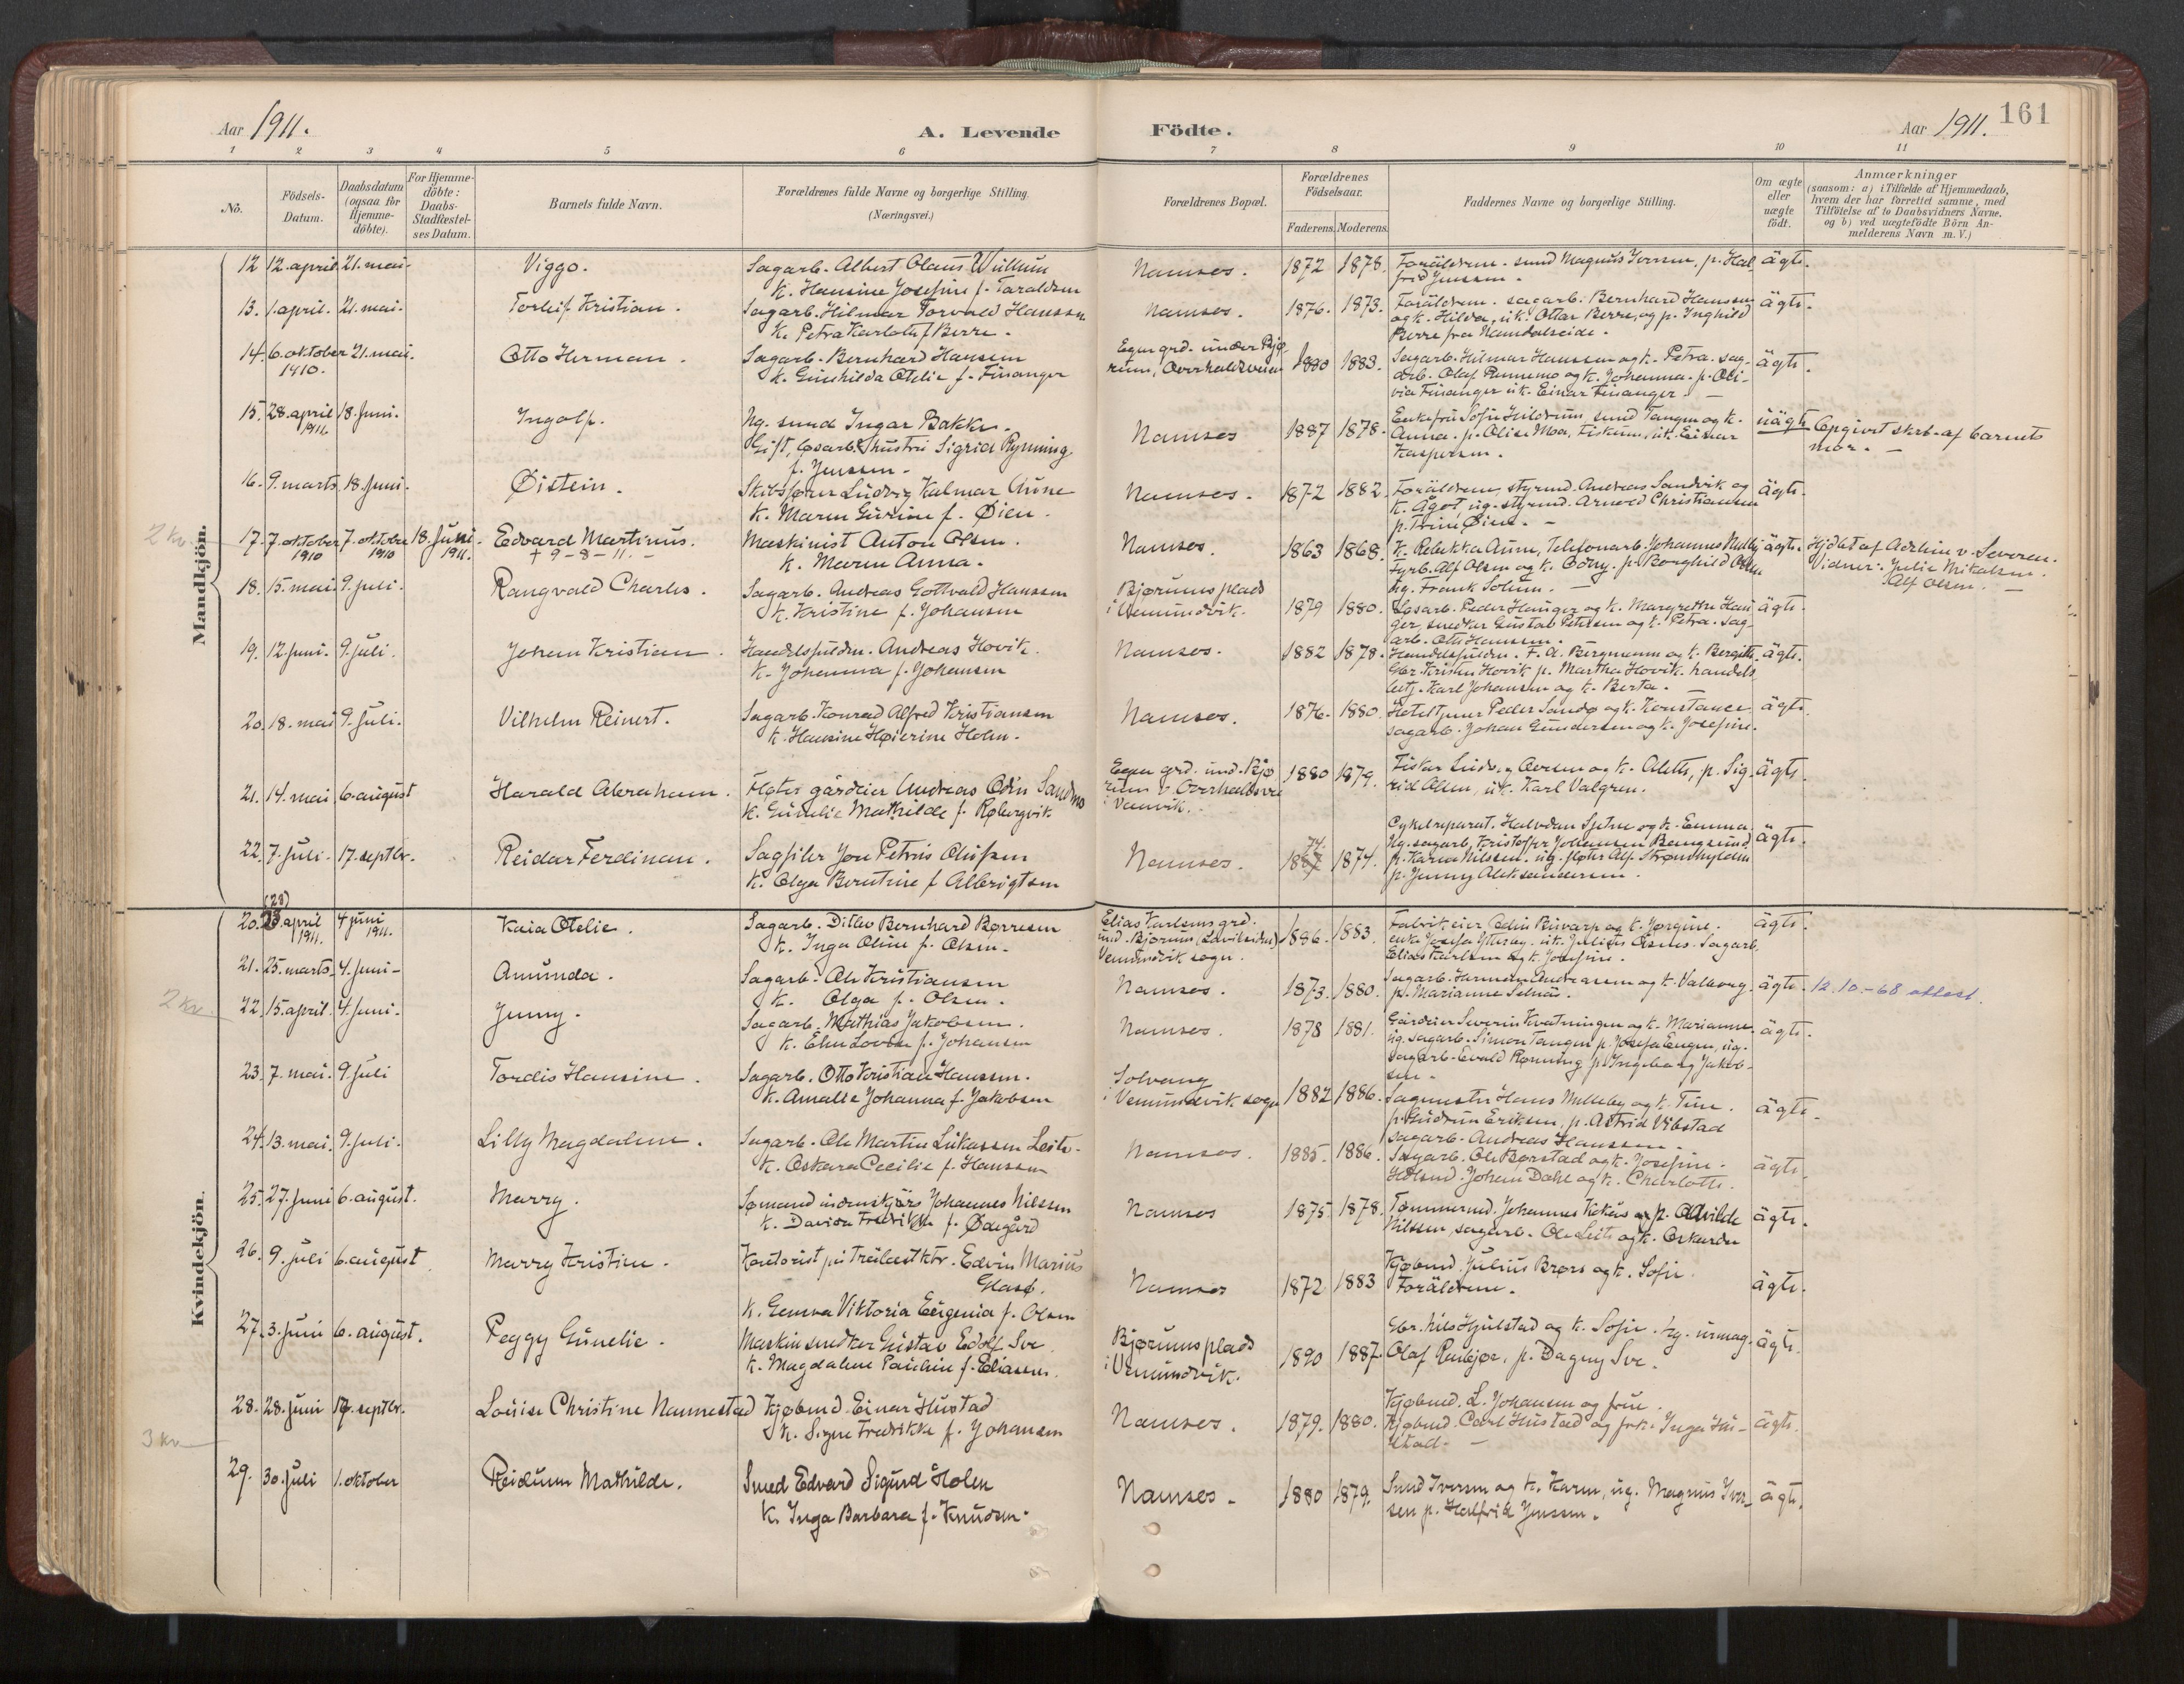 Aar 1911.
A. Levende Födte.
Aar 1911. 161
1 2 3 4 5 6 7 8 9 10 11
Nô.
Födsels-
Datum.
Daabsdatum
(ogsaa for
Hjemme-
döbte).
For Hjemme-
döbte:
Daabs-
Stadfæstel-
ses Datum.
Barnets fulde Navn.
Forældrenes fulde Navne og borgerlige Stilling.
(Næringsvei.)
Forældrenes Bopæl.
Forældrenes
Födselsaar.
Faderens. Moderens.
Faddernes Navne og borgerlige Stilling.
Om ægte
eller
uægte
födt.
Anmærkninger
(saasom: a) i Tilfælde af Hjemmedaab,
hvem der har forrettet samme, med
Tilföielse af to Daabsvidners Navne,
og b) ved uægtefödte Börn An-
melderens Navn m. V.)
Mandkjön.
12 12. april 21. mai. Viggo.
Sagarb. Albert Olaus
K. Hansine Josefine f. Taraldsen
Namsos. 1872 1878.
Foräldrene. smed Magnus Iversen, p. Hal
frid Jenssen.
ägte.
13. 1. april. 21. mai. Torleif Kristian.
Sagarb. Hilmar Torvald Hanssen
K. Petra Karlota f. Berre.
Namsos. 1876. 1873.
Foräldrene. sagarb. Bernhard Hanssen
og k. Hilda, uk. Ottar Berre, og p. Inghild
Berre fra Namdalseide.
ägte.
14. 6. oktober 1910. 21. mai. Otto Herman.
Sagarb. Bernhard Hansen
K. Gunhilda Otelie f. Finanger
Egen grd. under Bjø
rum, Overhaldsveien
1880 1883.
Sagarb. Hilmar Hanssen og k. Petra. sag-
arb. Olaf Runnemo og k. Johanna. p. Oli-
via Finanger uk. Einar Finanger.
ägte.
15. 28. april 1911. 18. Juni. Ingolf.
Ug. smed Ingar Bakke.
Gift, løsarb. hustru Sigrid Rynning
f. Jenssen.
Namsos 1887 1878.
Enkefru Sofie Hildrum, smed Tangen og k.
Anna. p. Olise Moa, Fiskum, uk. Einar
Kaspersen.
uägte
Opgivet skrb. af barnets
mor.
16. 9. marts. 18. Juni. Øistein.
Skibsfører Ludvig Kalmar Aune
K. Maren Gurine f. Øien.
Namsos. 1872 1882.
Foräldrene, styrmd. Andreas Sandvik og
k. Ågot, ug. styrmd. Arnold Christiansen
p. Trine Øien.
ägte.
2 kr.
17. 7. oktober 1910 7. oktober 1910 18. Juni 1911. Edvard Martinus.
† 9 - 8 - 11.
Maskinist Anton Olsen.
K. Maren Anna.
Namsos. 1863 1868.
K. Rebekka Aune, Telefonarb. Johannes
Fyrb. Alf Olsen og k. Odny. p. Borghild Olsen
ug. Frank Solum.
ägte.
Hjdbt af Adeline v. Severen.
Vidner: Julie Mikalsen.
Alf Olsen.
18. 15. mai. 9. juli. Rangvald Charles.
Sagarb. Andreas Gottvald Hanssen
K. Kristine f. Johansen
Bjørumsplads
i Vemundvik.
1879 1880.
Løsarb. Peder Hauger og k. Margrethe Hau
ger, smedker Gustav Petersen og k. Petra. sag-
arb. Otto Hanssen.
ägte
19. 12. juni. 9. juli. Johan Kristian.
Handelsfuldm. Andreas Hovik.
K. Johanna f. Johansen
Namsos. 1882 1878.
Handelsfuldm. F. A. Bergmann og k. Bergitte
Gbr. Kristen Hovik p. Martha Hovik. handels
betj. Karl Johansen og k. Berta.
ägte.
20. 18. mai 9. Juli. Vilhelm Reinert.
Sagarb. Konrad Alfred Kristiansen
K. Hansine Høierine Holm.
Namsos. 1876. 1880.
Hoteltjener Peder Sandø og k. Konstance
sagarb. Johan Gundersen og k. Josefine.
ägte.
21. 14. mai 6. august Harald Abraham.
Fløter gårdeier Andreas Odin Sandmo
K. Gunelie Mathilde f. Røbergvik
Egen grd. und. Bjø
rum v Overhaldsvei
i Vemvik.
1880 1879.
Fisker Ludvig Oersen og k. Alette, p. Sig-
rid Olsen, uk. Karl Valgren.
ägte.
22. 7. Juli. 17. septbr. Reidar Ferdinan.
Sagfiler Jon Petrus Olufsen
K. Olga Berntine f Albrigtsen
Namsos. 1887 74. 1874.
Cykelreparat. Halvdan Sjetne og k. Emma.
Ug. sagarb. Kristoffer Johansen Bangsund.
p. Karen Nilssen. ug. fløter Alf. Strandhylden
p. Jenny Aleksandersen.
ägte.
Kvindekjön.
20. (23) 23 april 1911. 4 juni 1911. Kaia Otelie.
Sagarb. Ditlev Bernhard Børresen
K. Inga Oline f. Olsen.
Elias Karlsens grd.
und. Bjørum (Lavikeidet)
Vemundvik sogn.
1886. 1883.
Fabrikeier Odin Risvarp og k. Jørgine.
enke Josefa Ytterøy. uk. Julius Åsnes. Sagarb.
Elias Karlsen og k. Josefine.
ägte.
21. 25. marts. 4. juni. Amunda.
Sagarb. Ole Kristiansen
K. Olga f. Olsen.
Namsos. 1873. 1880.
Sagarb. Herman Andreassen og k. Valborg.
p. Marianne Selnäs.
ägte. 12.10.-68 attest.
2 kr.
22. 15. april. 4. Juni. Jenny.
Sagarb. Mathias Jakobsen.
K. Elen Lovise f. Johansen
Namsos. 1878 1881.
Gårdeier Severin Kvatningen og k. Marianne.
ug. sagarb. Simon Tangen p. Josefa Engen, ug.
sagarb. Evald Rønning p. Ingeborg Jakob-
sen.
ägte.
23. 7. mai. 9. Juli Tordis Hansine.
Sagarb. Otto Kristian Hanssen.
K. Amalie Johanna f. Jakobsen
Solvang
i Vemundvik sogn
1882 1886.
Sagmester Hans Melleby og k. Tine.
p. Gudrun Eriksen, p. Astrid Vibstad
sagarb. Andreas Hanssen.
ägte.
24. 13. mai. 9. Juli. Lilly Magdalene.
Sagarb. Ole Martin Lukassen Leite.
K. Oskara Cecilie f. Hanssen
Namsos. 1885. 1886.
Sagarb. Ole Børstad og k. Josefine.
Johan Dahl og k. Charlotte.
ägte.
25. 27. juni 6. august. Marry.
Sømand indenskjærs Johannes Nilssen
K. Davida Fredrikke f. Ødegård
Namsos 1875 1878.
Tømmermd. Johannes p. Alvilde
Nilssen, sagarb. Ole Leite og k. Oskarda
ägte.
26. 9. juli 6. august Marry Kristine.
Kontorist på Trälastktr. Edvin Marius
Glasø.
K. Gemma Viktoria Eugenia f. Olsen
Namsos 1872 1883
Kjøbmd. Julius Brørs og k. Sofie.
Foräldrene.
ägte.
27. 3. juni 6. august. Peggy Gunelie.
Maskinsmedker Gustav Edolf Sve.
K. Magdalene Pauline f. Eliasen.
Bjørumsplads
i Vemundvik.
1890 1887.
Gbr. Nils Hjulstad og k. Sofie. Ug. urmag.
Olaf Rusbjør. p. Dagny Sve.
ägte.
28. 28. juni 17. septbr. Louise Christine Naunestad
Kjøbmd. Einar Hustad
K. Signe Fredrikke f. Johansen
Namsos. 1879. 1880.
Kjøbmd. L. Johansen og frue.
Kjøbmd. Carl Hustad og frk. Inga Hu-
stad.
ägte.
3 kr
29. 30. juli 1. oktober Reidunn Mathilde.
Smed Edvard Sigurd Holen
K. Inga Barbara f. Knudsen.
Namsos. 1880 1879.
Smed Iversen og k. Karen, ug. Magnus Iver-
sen p. Halfrid Jenssen.
ägte.